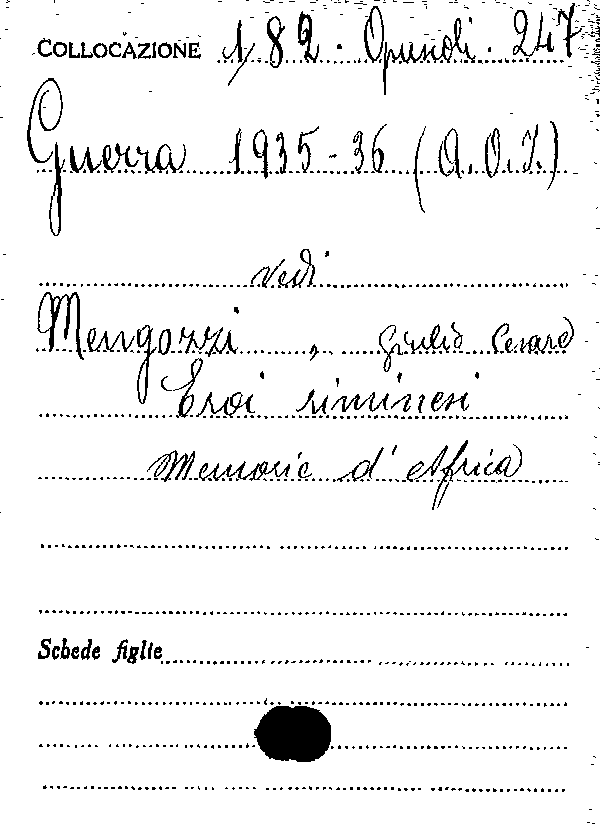 COLLOCAZIONE 1/82. Opuscoli. 247
Guerra 1935-36 (A.O.I.)
vedi
Mengozzi, Giulio Cesare
Eroi riminesi
Memorie d'Africa
Schede figlie